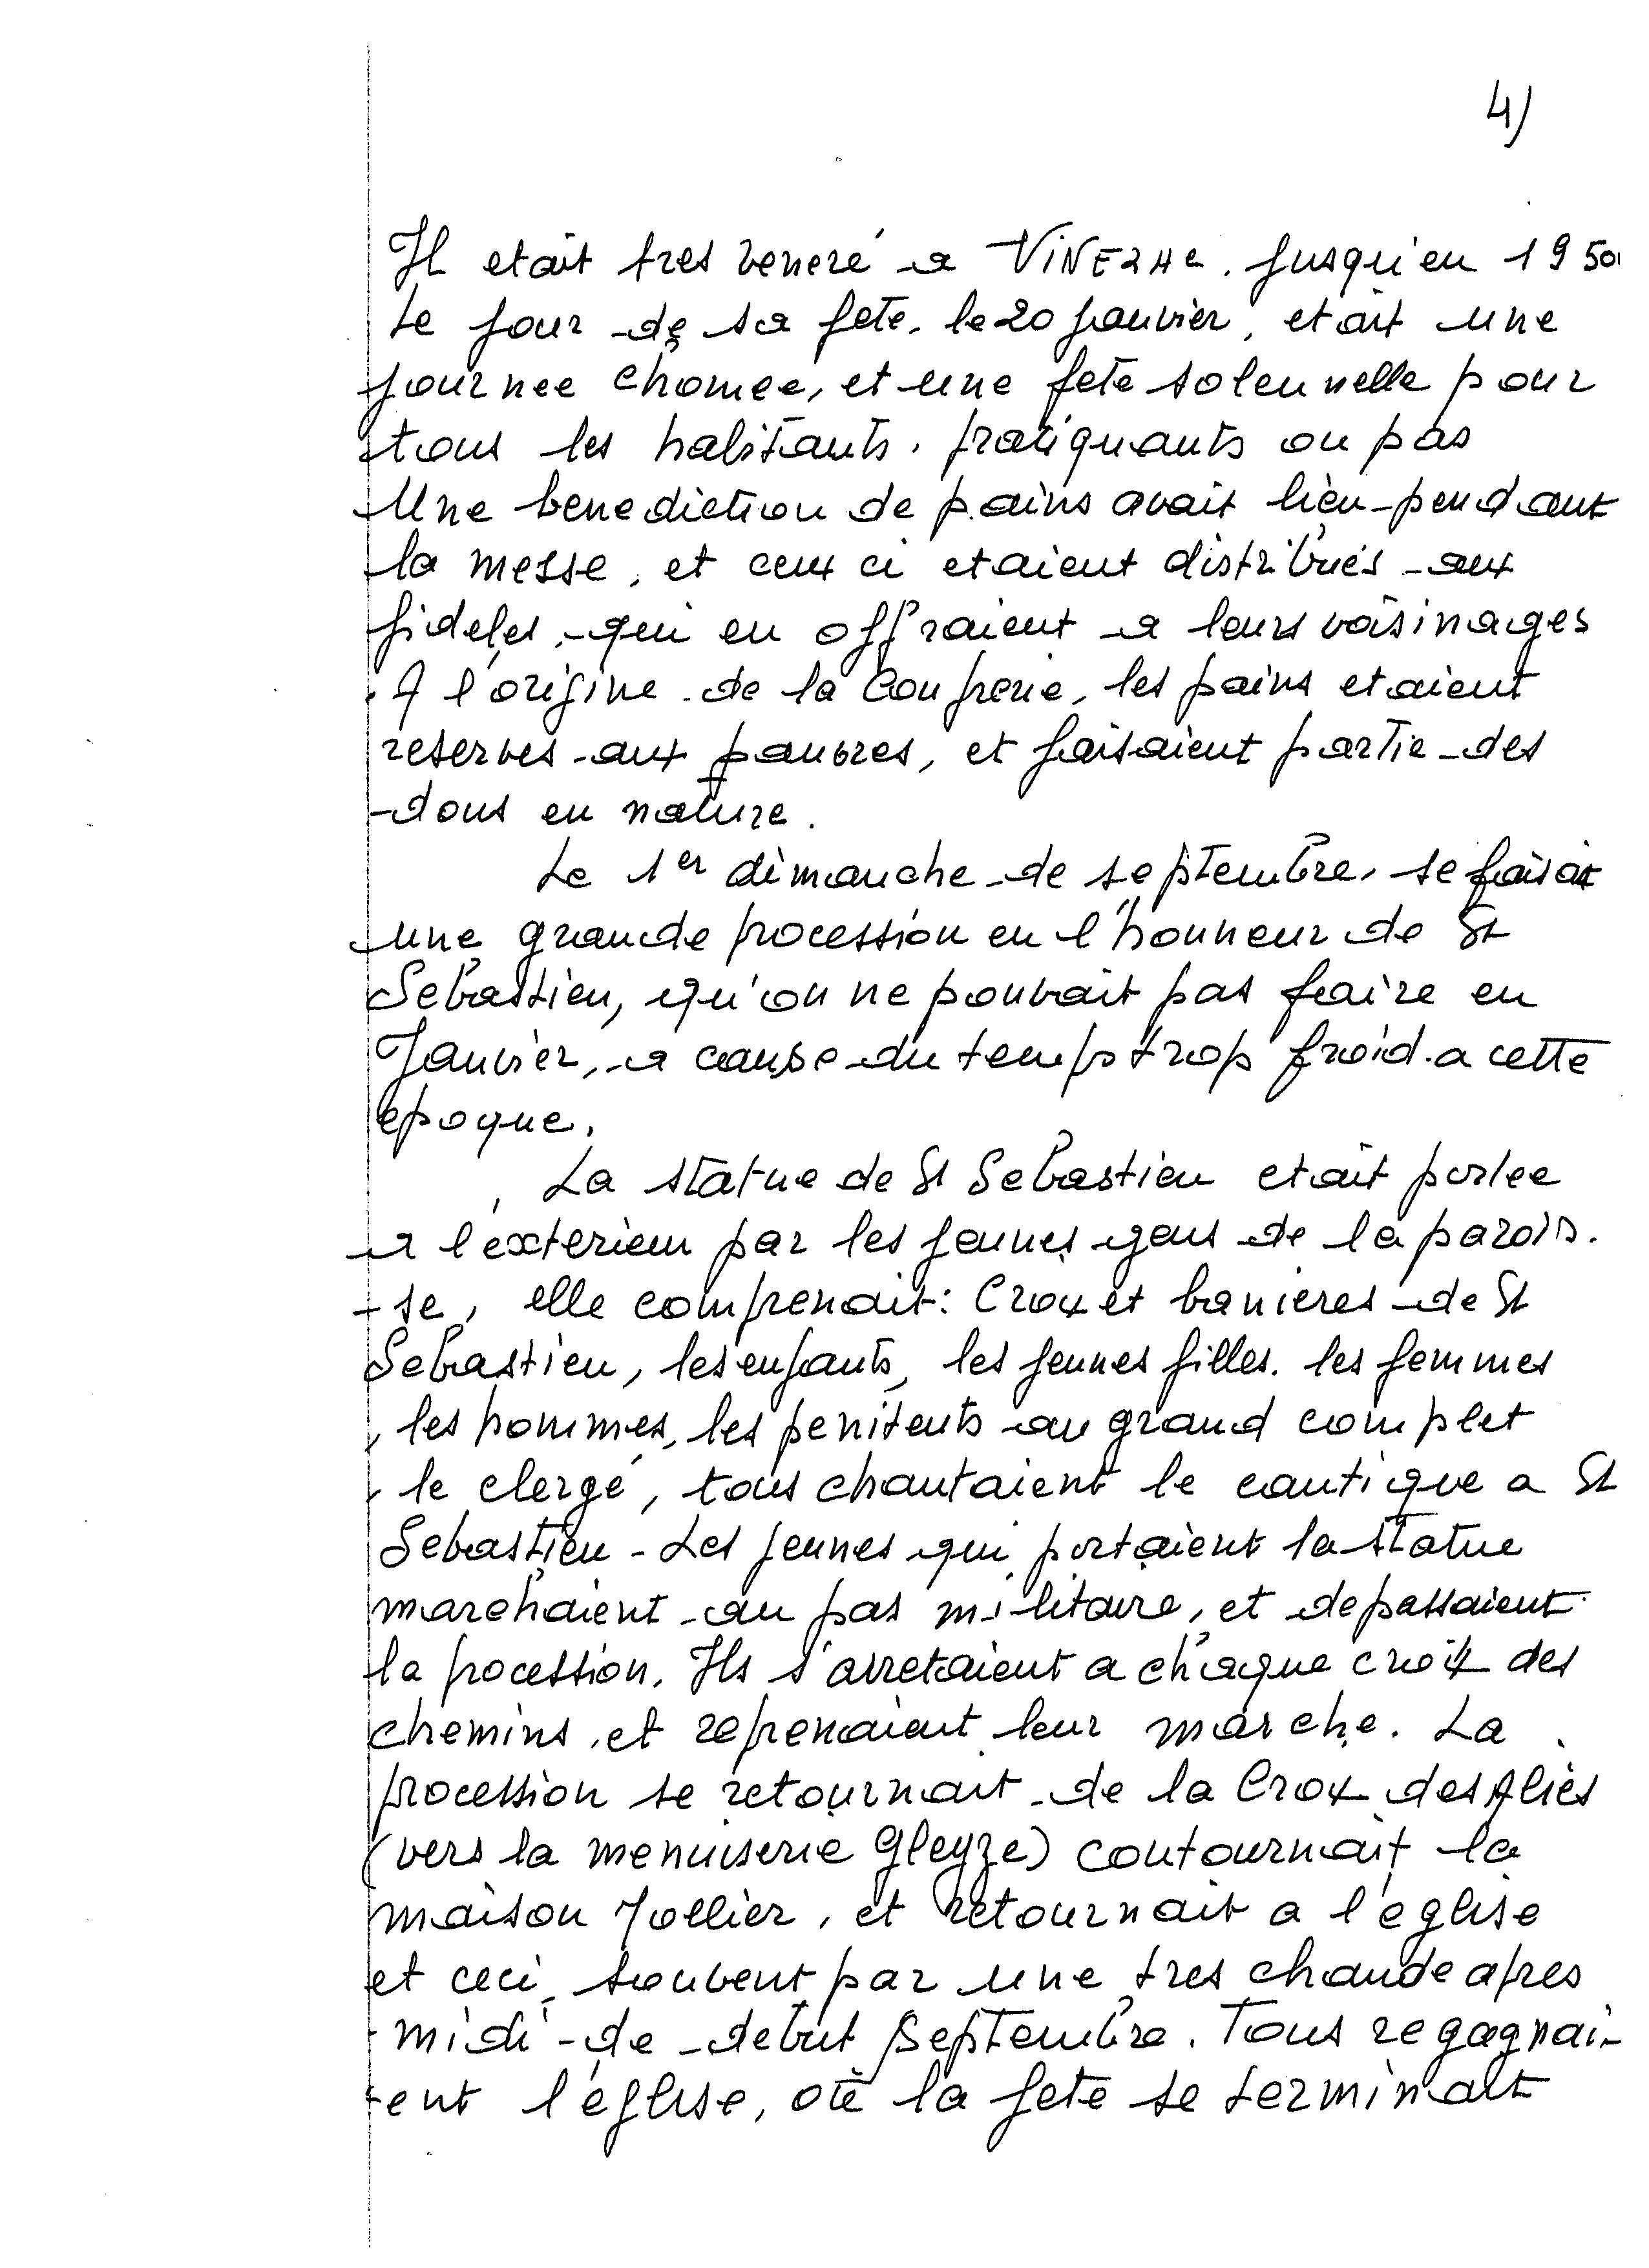 4)
Il etait tres veneré a VINEZAC. Jusqu'en 1950
Le jour de sa fete, le 20 janvier, etait une
journee chomee, et une fete solennelle pour
tous les habitants, pratiquants ou pas
Une benediction de pains avait lieu pendant
la messe, et ceux ci etaient distribués aux
fideles, qui en offraient a leurs voisinages
. A l'origine de la Confrerie, les pains etaient
reserves aux pauvres, et faisaient partie des
dons en nature.
Le 1er dimanche de septembre, se faisait
une grande procession en l'honneur de St
Sebastien, qu'on ne pouvait pas faire en
Janvier, a cause du temps trop froid a cette
epoque.
La statue de St Sebastien etait portee
a l'exterieur par les jeunes gens de la parois.
-se, elle comprenait: Croix et banieres de St
Sebastien, les enfants, les jeunes filles. les femmes
, les hommes, les penitents au grand complet
, le clergé, tous chantaient le cantique a St
Sebastien - Les jeunes qui portaient la statue
marchaient au pas militaire, et depassaient
la procession. Ils s'arretaient a chaque croix des
chemins, et reprenaient leur marche. La
procession se retournait de la Croix des Aliès
(vers la menuiserie Gleyze) contournait la
maison Jollier, et retournait a l'eglise
et ceci, souvent par une tres chaude apres
midi de debut Septembre. Tous regagnai-
-ent l'eglise, où la fete se terminait